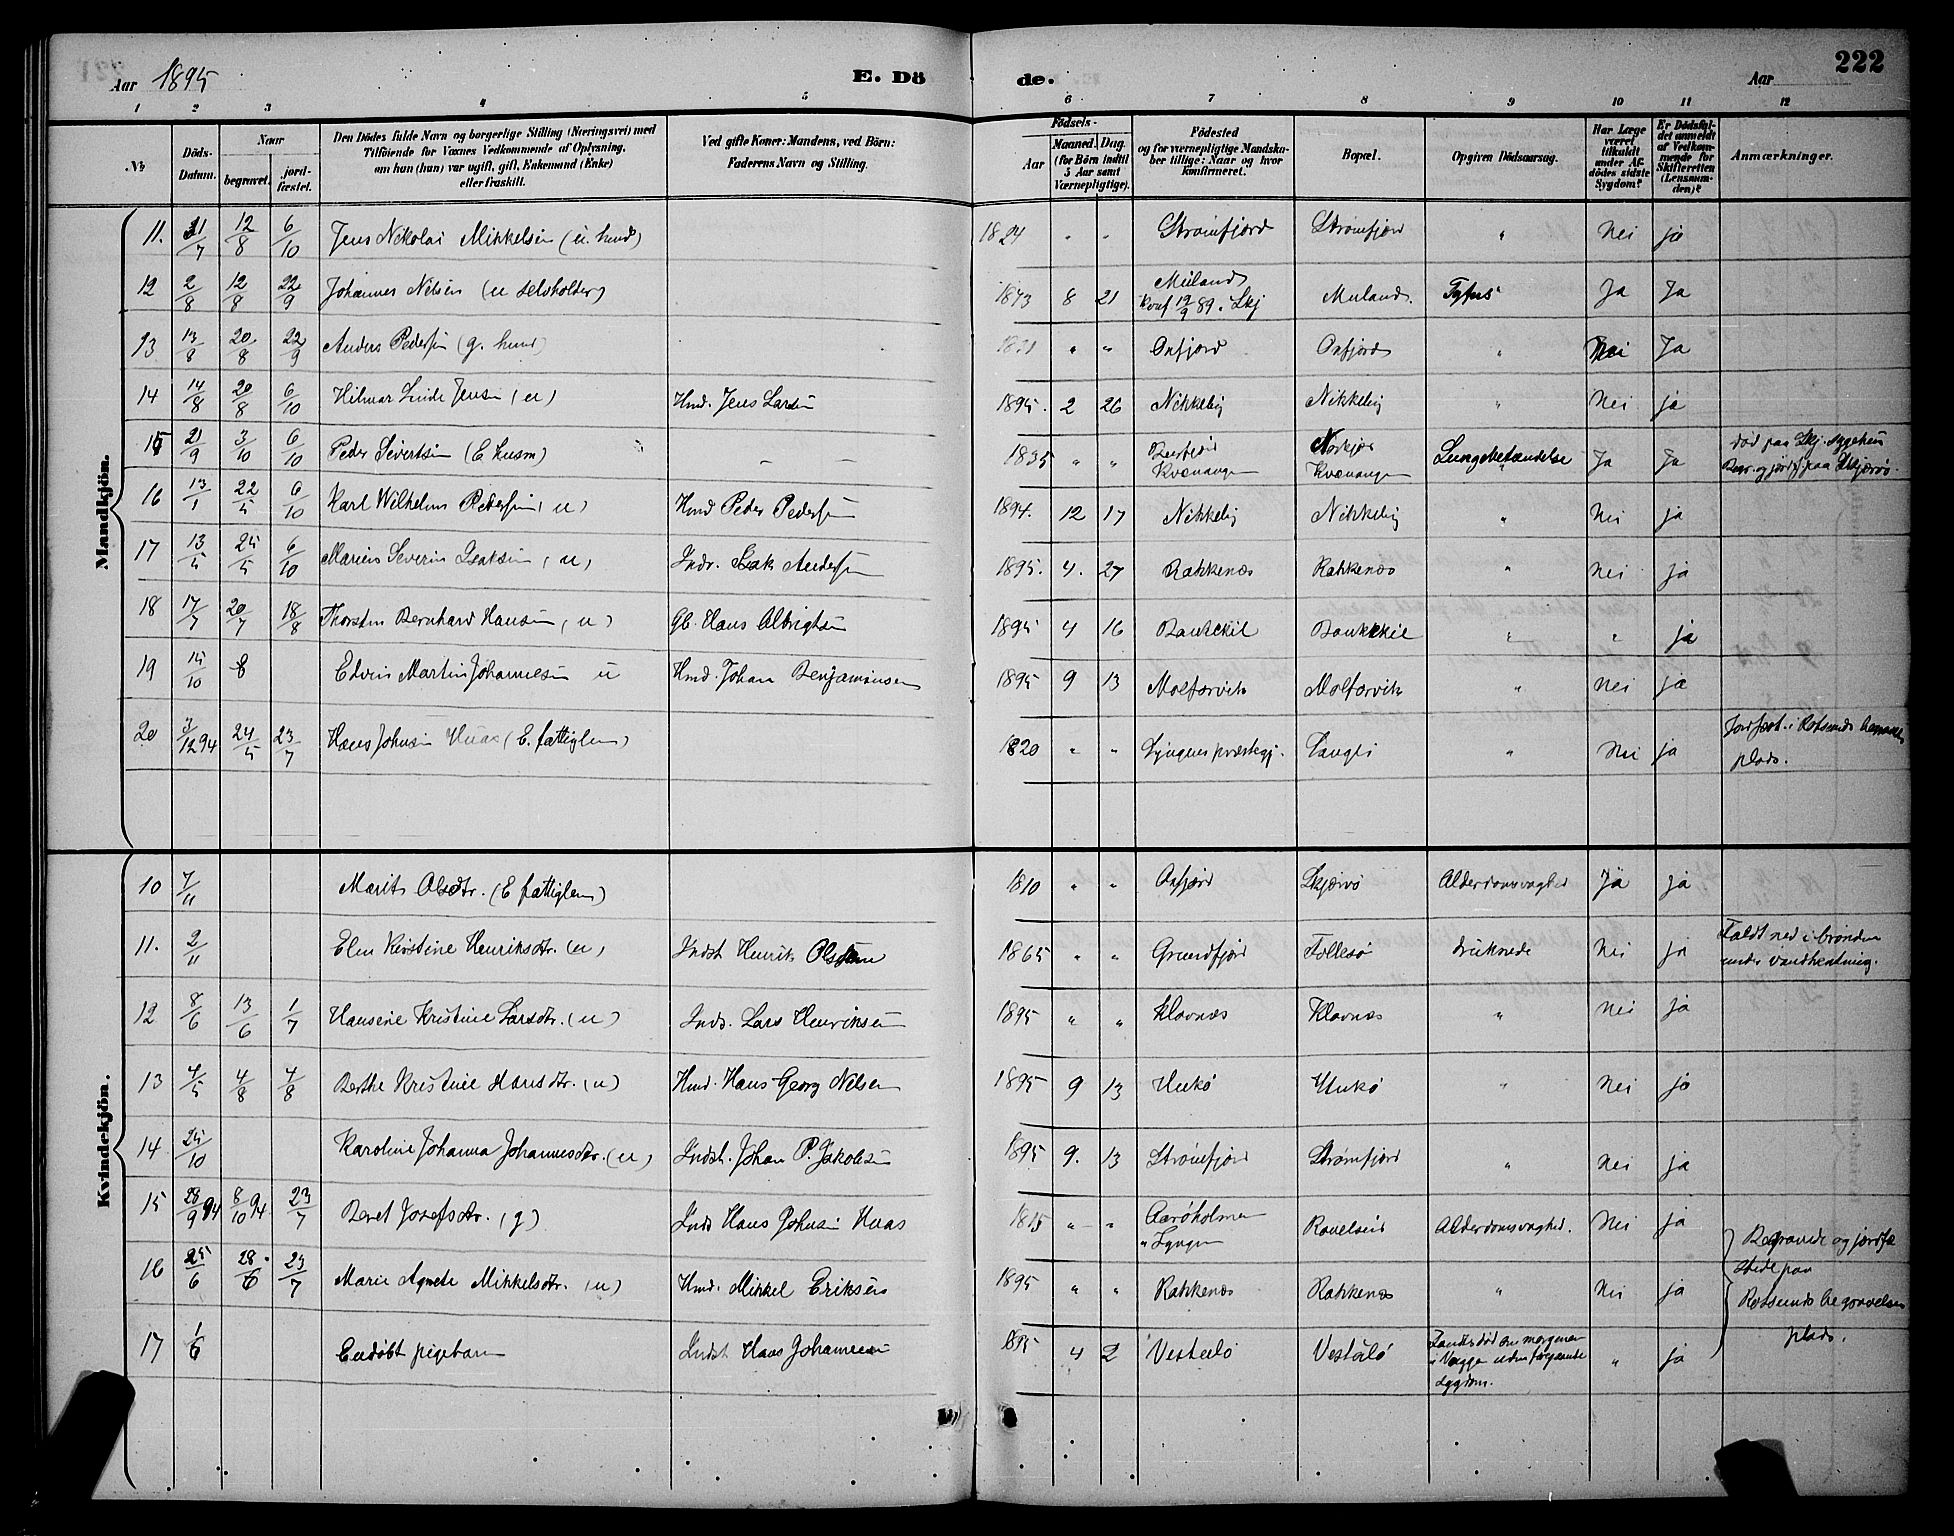 Aar 1895
E. Dö
de.
Aar
222
1 2 3 4 5 6 7 8 9 10 11 12
№
Döds-
Datum.
Naar
begravet.
jord-
fæstet.
Den Dödes fulde Navn og borgerlige Stilling (Næringsvei) med
Tilföiende for Voxnes Vedkommende af Oplysning,
om han (hun) var ugift, gift, Enkemand (Enke)
eller fraskilt.
Ved gifte Koner: Mandens, ved Börn:
Faderens Navn og Stilling.
Födsels-
Aar
Maaned. Dag.
(for Börn indtil
5 Aar samt
Værnepligtige).
Födested
og for værnepligtige Mandska-
ber tillige: Naar og hvor
konfirmeret.
Bopæl.
Opgiven Dödsaarsag.
Har Læge
været
tilkaldt
under Af-
dödes sidste
Sygdom?
Er Dödsfal-
det anmeldt
af Vedkom-
mende for
Skifteretten
(Lensman-
den)?
Anmærkninger.
Mandkjön.
11. 31/7 12/8 6/10 Jens Nikolai Mikkelsen (u. hmd) 1824 " " Strømfjord Strømfjord " Nei ja
12 2/8 12/8 22/9 Johannes Nilsen (u selvholder) 1873 8 21 Meiland Konf 12/9 89. Skj Meiland. Tyfus Ja Ja
13 13/8 20/8 22/9 Anders Pedersen (g. hmd) " " Oxfjord Oxfjord " Nei Ja
14 14/8 20/8 6/10 Hilmar Linde Jensen (u) Hmd. Jens Larsen 1895. 2 26 Nikkeby Nikkeby " Nei ja
15 21/9 3/10 6/10 Peder Sivertsen (E husm) – – 1835 " " Burfjord Kvænangen Kvænangen Lungebetændelse Ja Ja død paa Skj. sygehus
Begr. og jordf. paa Skjærvø.
16 13/1 22/5 6/10 Karl Wilhelm Pedersen (u) Hmd Peder Pedersen 1894. 12 17 Nikkeby Nikkeby " Nei ja
17 13/5 25/5 6/10 Marius Severin Isaksen (u) Inds. Isak Andersen 1895. 4. 27 Rakkenæs Rakkenæs " Nei ja
18 17/7 20/7 18/8 Thorsten Bernhard Hansen (u) Gb. Hans Albrigtsen 1895 4 16 Baukekil Baukekil " " ja
19 15/10 8 Edvin Martin Johannesen u Hmd. Johan Benjaminsen 1895 9 13 Molfarvik Molfarvik " Nei ja
20 3/12 94 24/5 23/7 Hans Johnsen Huas (E. fattiglem) 1820 " " Lyngens præstegj. Langli " Nei ja Jordfæst. i Rotsunds
plads.
Kvindekjön.
10 7/11 Marit Olsdtr. (E fattiglem) 1810 " " Oxfjord Skjærvø Alderdomssvaghed Ja ja
11. 2/11 Elen Kristine Henriksdtr. (u) Indst Henrik Olsen 1865 " " Grundfjord Follesø druknede Nei ja Faldt ned i brønden
under vandhentning.
12 8/6 13/6 1/7 Hansine Kristine Larsdtr. (u) Inds. Lars Henriksen 1895 " " Klovnæs Klovnæs " Nei ja
13 4/5 4/8 4/8 Berthe Kristine Hansdtr. (u) Hmd. Hans Georg Nilsen 1895 9 13 Hukø Hukø " Nei ja
14 25/10 Karoline Johanna Johannesdtr. (u) Indst. Johan P. Jakobsen 1895 9. 13 Strømfjord Strømfjord " Nei ja
15 28/9 94 8/10 94 23/7 Beret Josefsdtr. (g) Inds Hans Johnsen Huas 1815 " " Aarøholmen
" Lyngen Ravelseid Alderdomssvaghed. Nei ja
16 25/6 28/6 23/7 Marie Agnete Mikkelsdtr. (u) Hmd. Mikkel Eriksen 1895 " " Rakkenæs Rakkenæs " Nei ja Begravede og jordfæ
stede paa
Rotsunds begravelses
plads.
17 1/6 Endøbt pigebarn Indst Hans Johannesen 1895 4 2 Vesterlø Vesterlø Fandtes død om morgenen
i Vugge uden foregaaende
sygdom. " ja